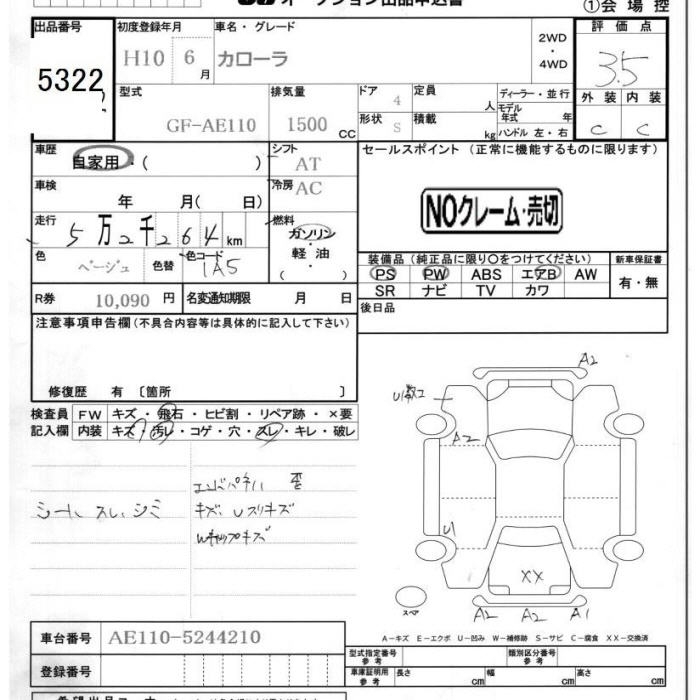 オークション出品申込書
①会場控
出品番号 5322
初度登録年月 H10 6月
車名・グレード カローラ
2WD・4WD
評価点 3.5
外装 C 内装 C
型式 GF-AE110
排気量 1500 CC
ドア 4
形状 S
定員 人
積載 kg
ディーラー・並行
モデル年式 年
ハンドル 左・右
車歴 自家用・( )
シフト AT
セールスポイント (正常に機能するものに限ります)
NOクレーム・売切
車検 年 月( 日)
冷房 AC
走行 5万2千264km
燃料 ガソリン・軽油 ( )
色 ベージュ 色替 色コード 1A5
装備品 (純正品に限り〇をつけてください)
PS PW ABS エアB AW
SR ナビ TV カワ
新車保証書 有・無
R券 10,090 円
名変通知期限 月 日
後日品
注意事項申告欄 (不具合内容等は具体的に記入して下さい)
修復歴 有〔箇所 〕
検査員記入欄
FW キズ・飛石・ヒビ割・リペア跡・×要
内装 キズ・汚レ・コゲ・穴・スレ・キレ・破レ
シート、スレ、シミ
エンドパネル 歪
キズ、Uスリキズ
A2
A2
U
XX
スペア
A2 A2 A1
A-キズ E-エクボ U-凹み W-補修跡 S-サビ C-腐食 XX-交換済
車台番号 AE110-5244210
登録番号
型式指定番号 参考
類別区分番号 参考
車庫証明用 参考 長さ cm 幅 cm 高さ cm